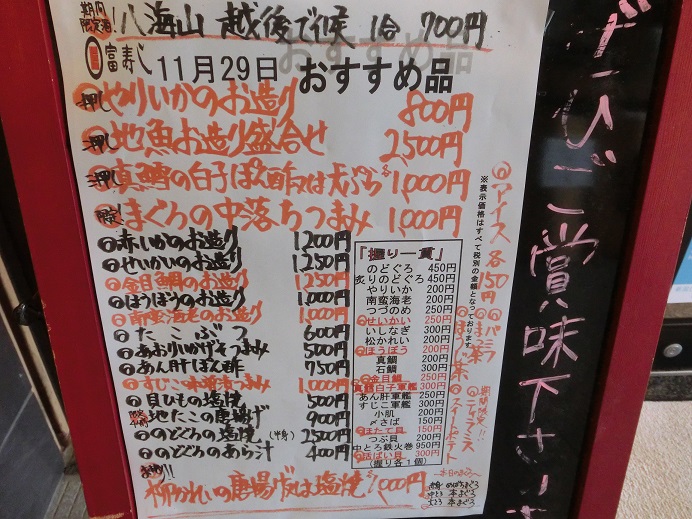 期間限定酒! 八海山 越後で候 1合 700円
富寿し 11月29日 おすすめ品
押し! やりいかのお造り 800円
押し 地魚お造り盛合せ 2,500円
押し! 真鱈の白子ぽん酢又は天ぷら 各1,000円
限定! まぐろの中落ちつまみ 1,000円
赤いかのお造り 1,200円
せいかいのお造り 1,250円
金目鯛のお造り 1,250円
ほうぼうのお造り 1,000円
南蛮海老のお造り 1,000円
たこぶつ 600円
あおりいかげそつまみ 500円
あん肝ぽん酢 750円
すじこ味噌漬つまみ 1,000円
目ひもの塩焼 500円
地たこの唐揚げ 900円
のどぐろの塩焼(半身) 2500円
のどぐろのあら汁 400円
柳かれいの唐揚げ又は塩焼 1,000円
「握り一貫」
のどぐろ 450円
炙りのどぐろ 450円
やりいか 200円
南蛮海老 200円
つづのめ 200円
せいかい 250円
いしなぎ 300円
松かれい 200円
ほうぼう 200円
真鯛 200円
石鯛 300円
金目鯛 250円
真鱈白子軍艦 300円
あん肝軍艦 250円
すじこ軍艦 300円
小肌 200円
〆さば 150円
ほたて貝 150円
つぶ貝 200円
中とろ鉄火巻 950円
活ばい貝 300円
(握り各1個)
本日のまぐろ
赤身 のぼりまぐろ
中とろ 本まぐろ
大とろ 本まぐろ
※表示価格はすべて税別の金額となっております。
アイス 各150円
バニラ
まっ茶
ほうじ茶
期間限定!!
ティラミス
スイートポテト
ぜひご賞味下さいませ